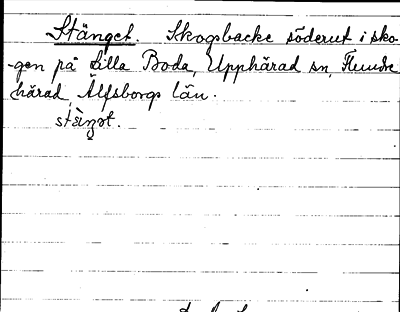 Stänget. Skogsbacke söderut i sko-
-gen på Lilla Boda, Upphärad sn, Flundre
härad Älfsborgs län.